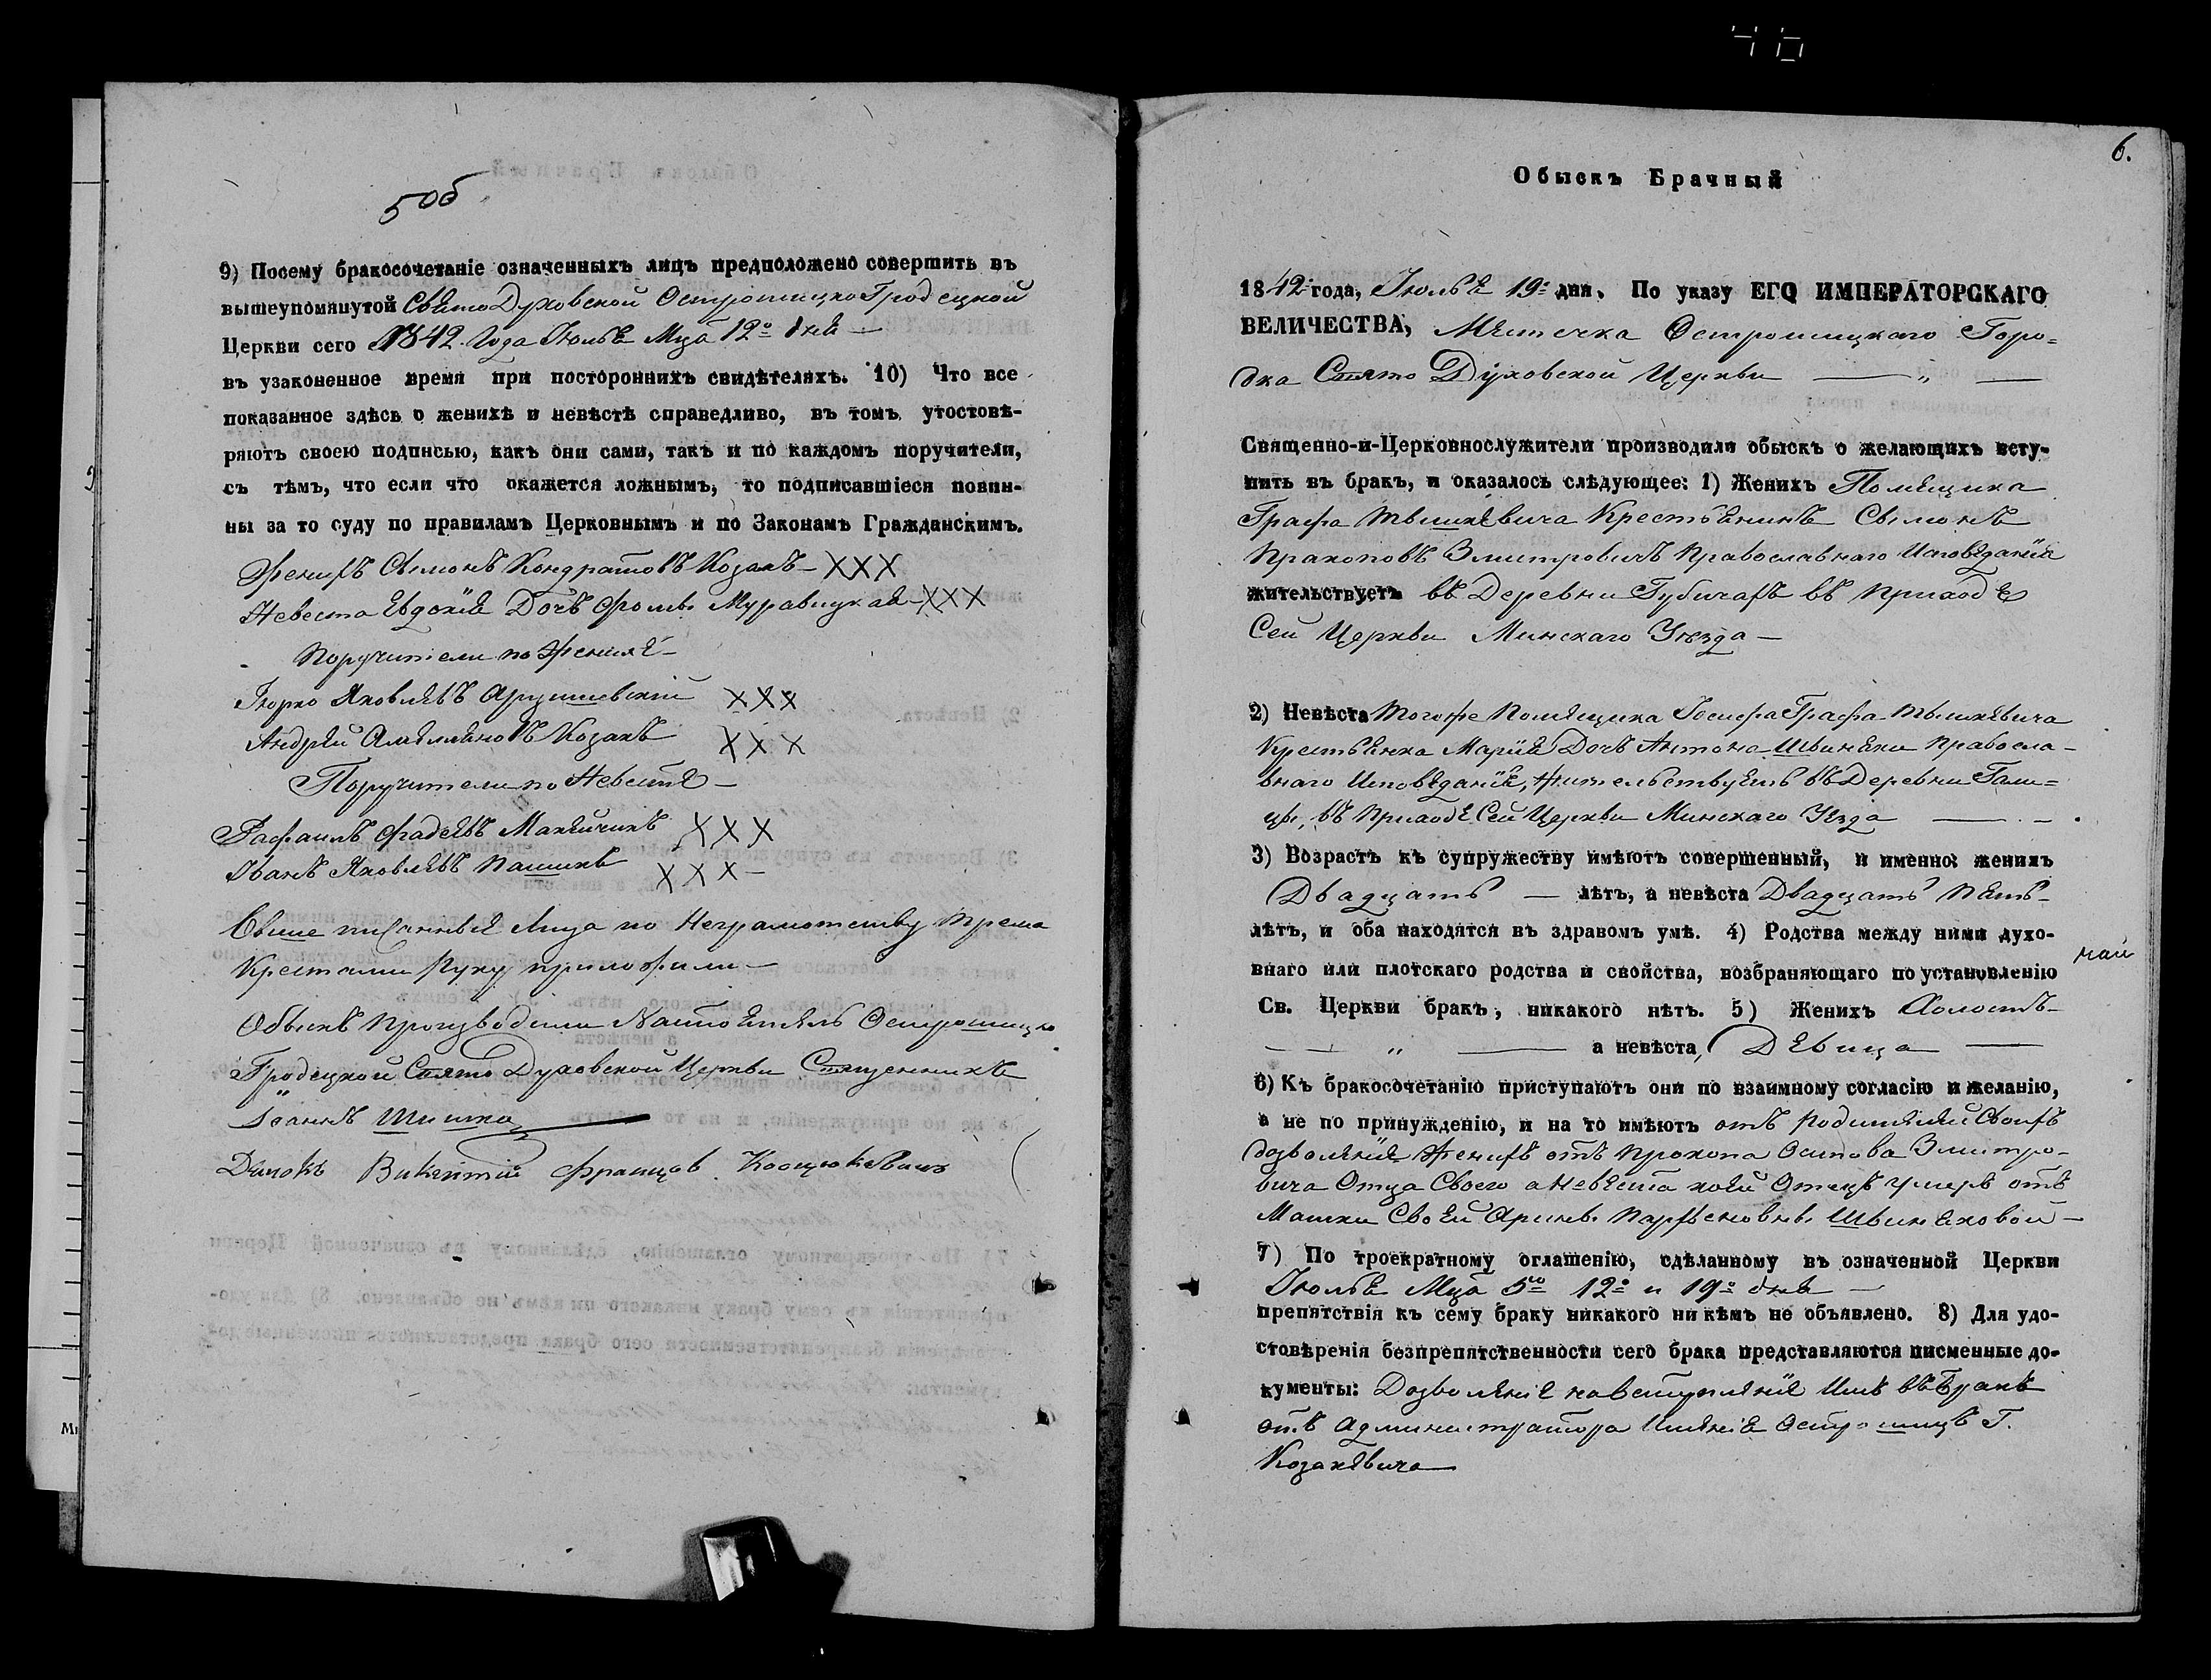 5 об
9) Посему бракосочетаніе означенныхъ лицъ предположено совершить въ
вышеупомянутой Свято Духовской Острошицко Гродецкой
Церкви сего 1842 Года Іюля Мца 12о дня —
въ узаконенное время при постороннихъ свидѣтеляхъ. 10) Что все
показанное здѣсь о женихѣ и невѣстѣ справедливо, въ томъ утостовѣ-
ряютъ своею подписью, какъ они сами, такъ и по каждомъ поручители,
съ тѣмъ, что если что окажется ложнымъ, то подписавшіеся повин-
ны за то суду по правиламъ Церковнымъ и по Законамъ Гражданскимъ.
Женихъ Сымонъ Кондратовъ Козакъ — XXX
Невеста Евдокія Дочь Фомы Муравицкая XXX
Поручители по Жениху —
Юрко Яковлевъ Арцишевскій XXX
Андрей Амяляновъ Козакъ XXX
Поручители по Невесте —
Рафаилъ Фадеевъ Макейчикъ XXX
Иванъ Яковлевъ Пашикъ XXX —
Свыше писанные Лица по Неграмотству Трема
Крестами Руку приложили —
Обыскъ Производили Настоятель Острошицко
Гродецкой Свято Духовской Церкви Священникъ
Іоаннъ Шишка
Дьячокъ Викентій Францов. Косцюкевичъ
6.
Обыскъ Брачный
1842 года, Іюля 19о дня. По указу ЕГО ИМПЕРАТОРСКАГО
ВЕЛИЧЕСТВА, Местечка Острошицкаго Горо=
дка Свято Духовской Церкви — „ —
Священно-и-Церковнослужители производили обыскъ о желающихъ всту-
пить въ бракъ, и оказалось слѣдующее: 1) Женихъ Помещика
Графа Тышкевича Крестьянинъ Сымонъ
Прокоповъ Змитровичъ Православнаго Исповеданія
жительствуетъ въ Деревни Губичахъ въ приходе
Сей Церкви Минскаго Уезда —
2) Невѣста Тогожъ Помещика Іосифа Графа Тышкевича
Крестьянка Марія Дочь Антона Швинеки Правосла-
внаго Исповеданія, Жительствуетъ въ Деревни Гали=
цы, въ Приходе Сей Церкви Минскаго Уезда — .
3) Возрастъ къ супружеству имѣютъ совершенный, и именно: женихъ
Двадцать — лѣтъ, а невѣста Двадцать Пять —
лѣтъ, и оба находятся въ здравомъ умѣ. 4) Родства между ними духо-
внаго или плотскаго родства и свойства, возбраняющаго по установленію
Св. Церкви бракъ, никакого нѣтъ. 5) Женихъ Холостъ —
— „ — а невѣста Девица —
6) Къ бракосочетанію приступаютъ они по взаимному согласію и желанію,
а не по принужденію, и на то имѣютъ отъ родителей Своихъ
дозволеніе Женихъ отъ Прокопа Осипова Змитро-
вича Отца Своего а Невеста коей Отецъ умеръ отъ
Матки Своей Арины Парфеновны Швинековой —
7) По троекратному оглашенію, сдѣланному въ означенной Церкви
Іюля Мца 5го 12о и 19о дня —
препятствія къ сему браку никакого ни кѣмъ не объявлено. 8) Для удо-
стовѣренія безпрепятственности сего брака представляются писменные до-
кументы: Дозволеніе на вступленіе Имъ въ Бракъ
отъ Администратора Именія Острошицъ Г.
Козакевича —